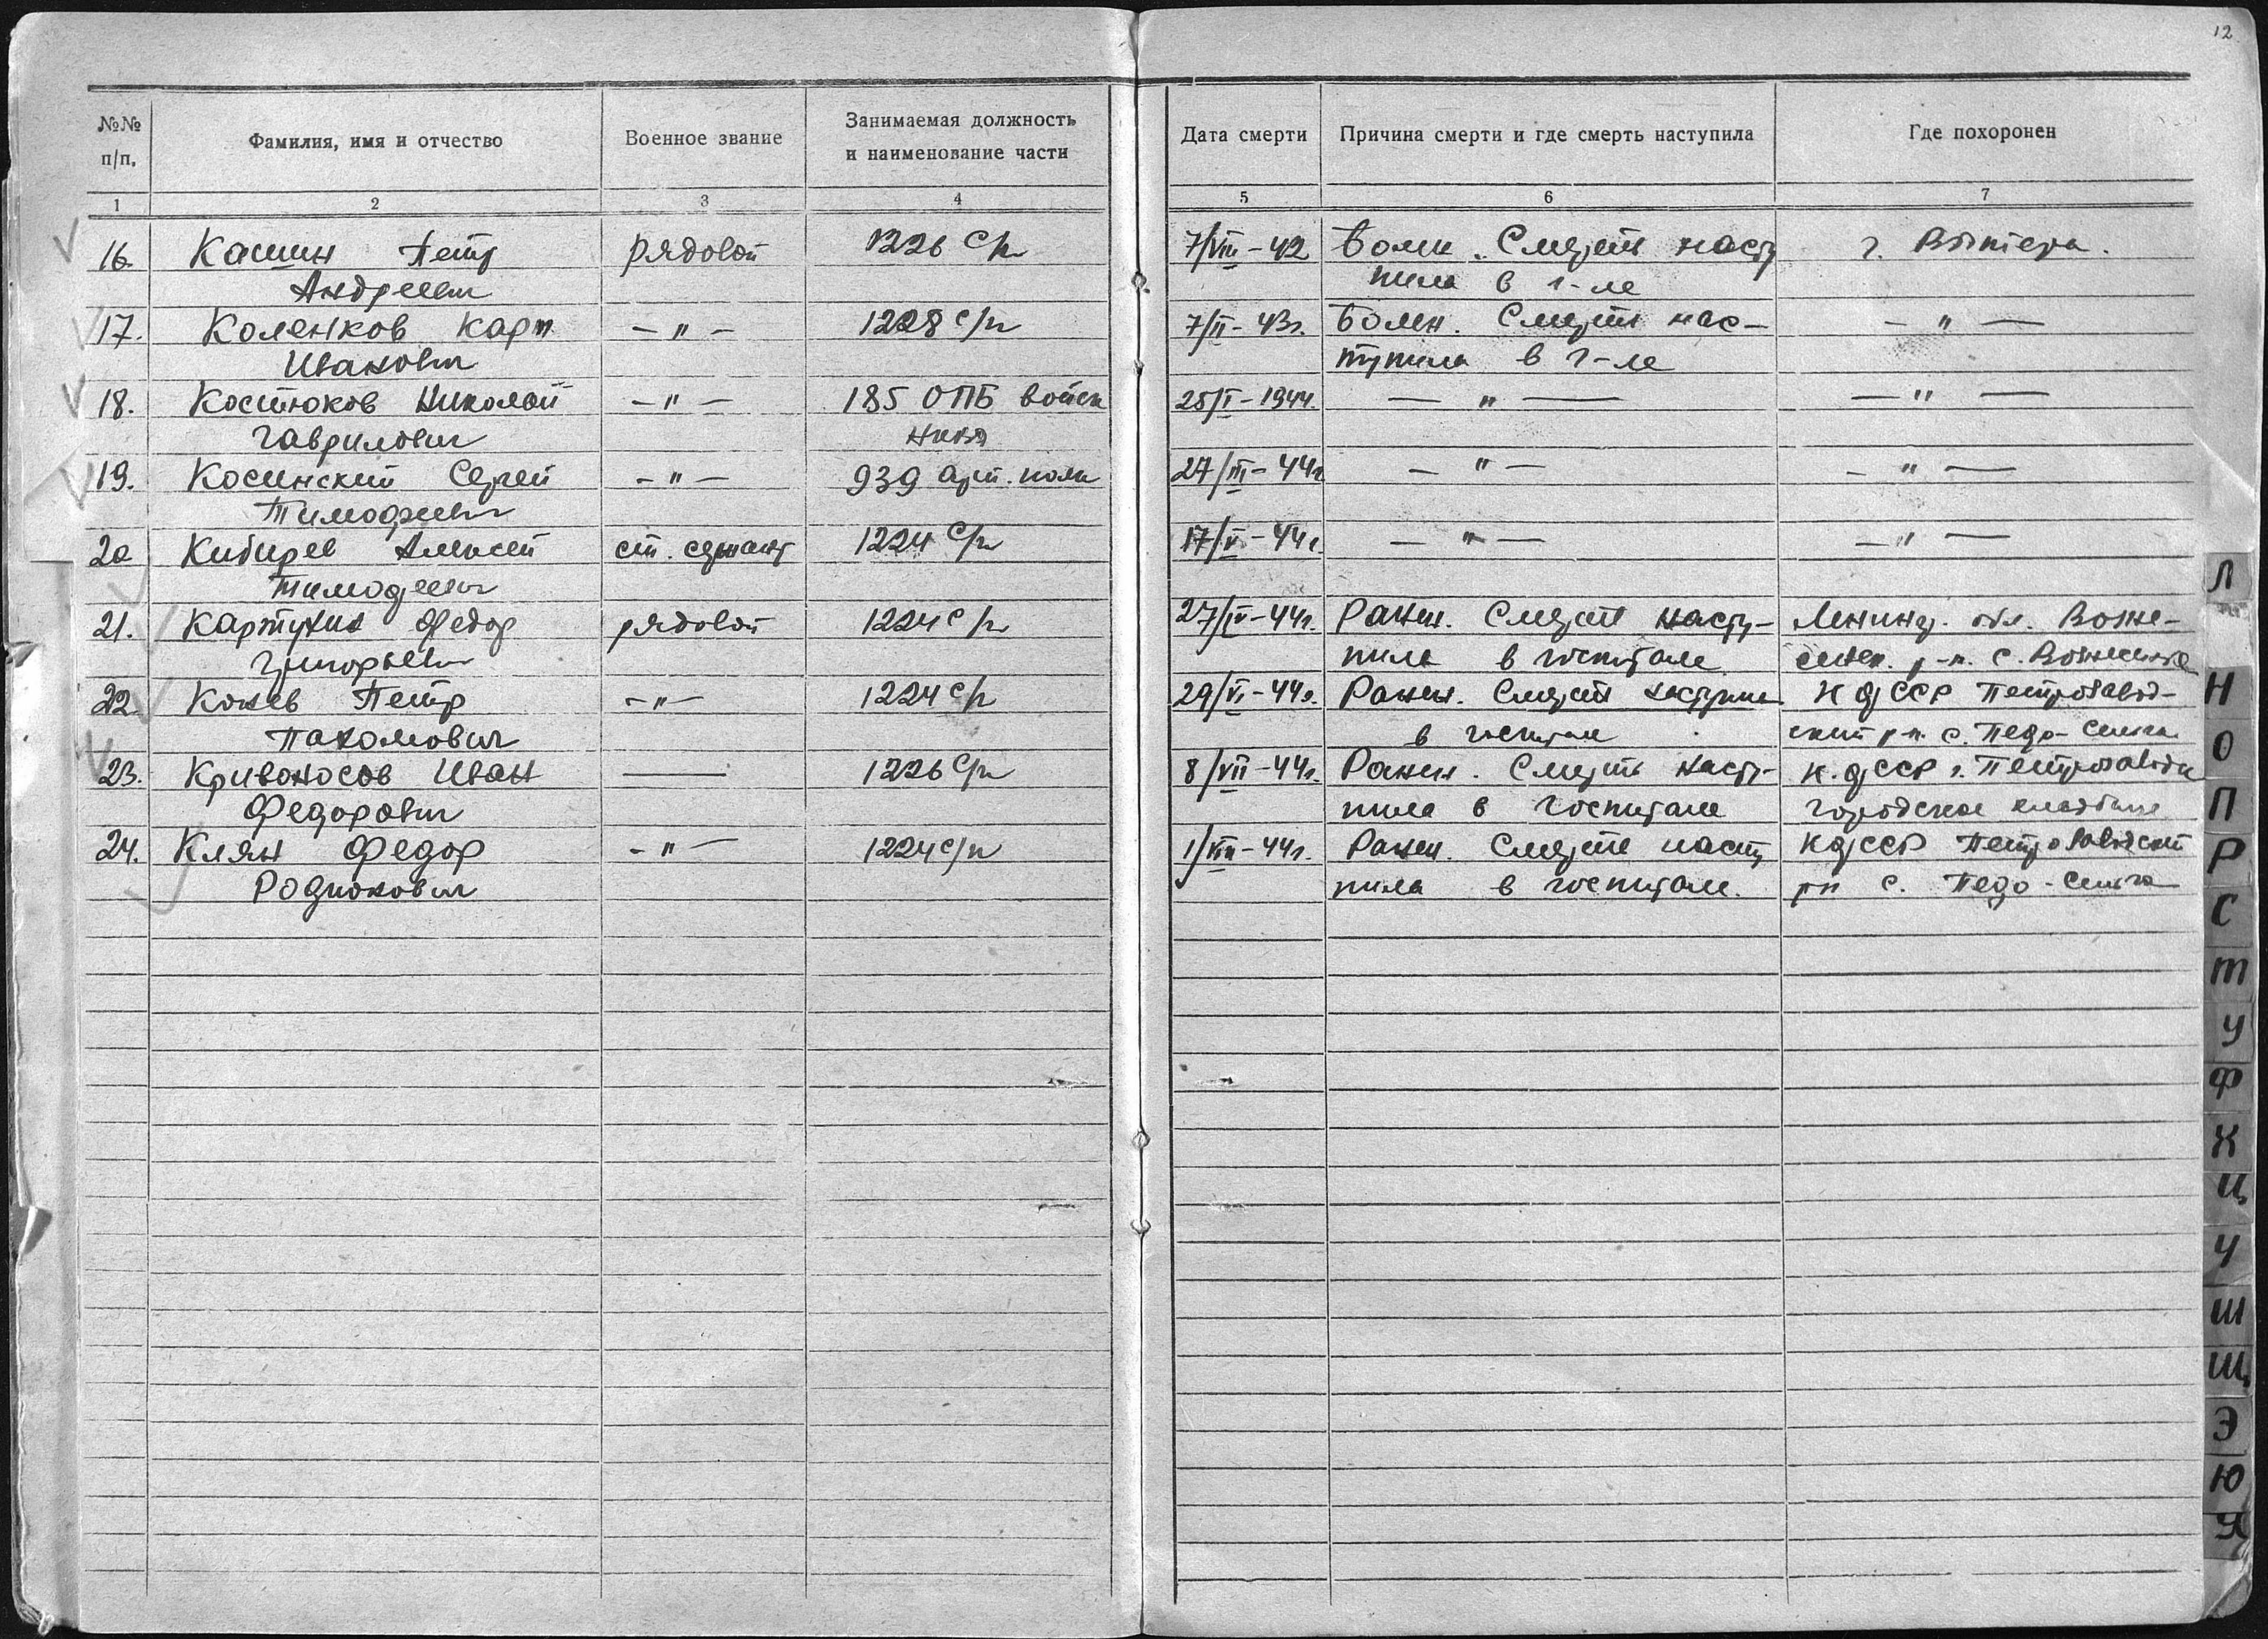 12
№№ п/п.
Фамилия, имя и отчество
Военное звание
Занимаемая должность
и наименование части
Дата смерти
Причина смерти и где смерть наступила
Где похоронен
1 2 3 4 5 6 7
16. Кашин Петр рядовой 1226 с/п 7/VIII-42 Болен. Смерть насту г. Вытегра.
Андреевич пила в г-ле
17. Коленков Карп — " — 1228 с/п 7/II-43г. Болен. Смерть нас- — " —
Иванович тупила в г-ле
18. Костюков Николай — " — 185 ОПБ войск 25/I-1944. — " — — " —
Гаврилович НКВД
19. Косинский Сергей — " — 939 арт. полк 27/III-44г — " — — " —
Тимофеевич
20 Кибирев Алексей ст. сержант 1224 с/п 17/V-44г. — " — — " —
Тимофеевич
21. Картухин Федор рядовой 1224 с/п 27/IV-44г. Ранен. Смерть насту- Ленингр. обл. Возне-
Григорьевич пила в госпитале сенск. р-н. с. Вознесенье
22. Конев Петр — " — 1224 с/п 29/VI-44г. Ранен. Смерть наступила К ф ССР Петрозавод-
Пахомович в госпитале ский р-н. с. Педо-Сельга
23. Кривоносов Иван —— 1226 с/п 8/VII-44г. Ранен. Смерть насту- К. ф ССР г. Петрозаводск
Федорович пила в госпитале городское кладбище
24. Клян Федор — " — 1224 с/п 1/VIII-44г. Ранен. Смерть насту КфССР Петрозаводский
Родионович пила в госпитале. рн с. Педо-Сельга
Л
Н
О
П
Р
С
Т
У
Ф
Х
Ц
Ч
Ш
Щ
Э
Ю
Я